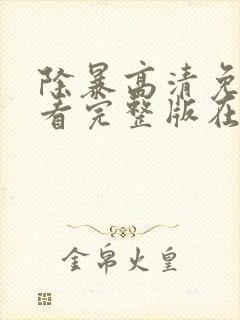 除暴高清免
看完整版在
金帛火皇